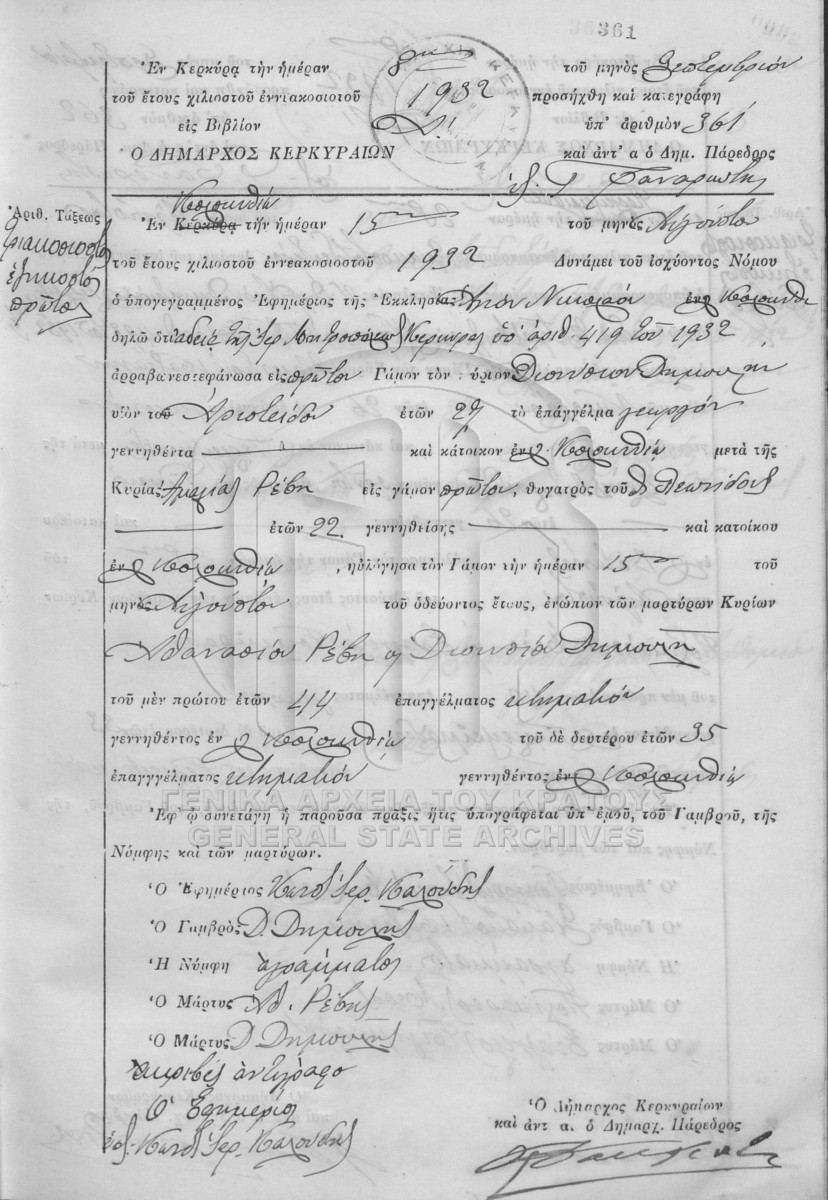 361
Ἐν Κερκύρᾳ τὴν ἡμέραν 8ην τοῦ μηνὸς Σεπτεμβρίου
τοῦ ἔτους χιλιοστοῦ ἐννιακοσιοτοῦ 1932 προσήχθη καὶ κατεγράφη
εἰς Βιβλίον Α! ὑπ' ἀριθμὸν 361
Ο ΔΗΜΑΡΧΟΣ ΚΕΡΚΥΡΑΙΩΝ καὶ ἀντ' α ὁ Δημ. Πάρεδρος
Ἀριθ. Τάξεως
Τριακοσιοστὸς
ἑξηκοστὸς
πρῶτος
Ἐν Κερκύρᾳ τὴν ἡμέραν 15 τοῦ μηνὸς Αὐγούστου
τοῦ ἔτους χιλιοστοῦ ἐννεακοσιοστοῦ 1932 Δυνάμει τοῦ ἰσχύοντος Νόμου
ὁ ὑπογεγραμμένος Ἐφημέριος τῆς Ἐκκλησίας Ἁγίου Νικολάου ἐν
δηλῶ ὅτι ἀδείᾳ τῆς Ἱερ. Μητροπόλεως Κερκύρας ὑπ' ἀριθ. 419 τοῦ 1932
ἀρραβωνεστεφάνωσα εἰς πρῶτον Γάμον τὸν κύριον Διονύσιον Δημούλην
υἱὸν τοῦ Ἀριστείδου ἐτῶν 27 τὸ ἐπάγγελμα γεωργόν
γεννηθέντα καὶ κάτοικον ἐν μετὰ τῆς
Κυρίας Ἀμαλίας Ρέβη εἰς γάμον πρῶτον, θυγατρὸς τοῦ Λεωνίδου
ἐτῶν 22. γεννηθείσης καὶ κατοίκου
ἐν , ηὐλόγησα τὸν Γάμον τὴν ἡμέραν 15 τοῦ
μηνὸς Αὐγούστου τοῦ ὁδεύοντος ἔτους, ἐνώπιον τῶν μαρτύρων Κυρίων
Ἀθανασίου Ρέβη Διονυσίου Δημούλη
τοῦ μὲν πρώτου ἐτῶν 44 ἐπαγγέλματος κτηματίου
γεννηθέντος ἐν τοῦ δὲ δευτέρου ἐτῶν 35
ἐπαγγγέλματος κτηματίου γεννηθέντος ἐν
ΓΕΝΙΚΑ ΑΡΧΕΙΑ ΤΟΥ ΚΡΑΤΟΥΣ
Ἐφ' ᾧ συνετάγη ἡ παροῦσα πρᾶξις ἥτις ὑπογράφεται ὑπ' ἐμοῦ, τοῦ Γαμβροῦ, τῆς
GENERAL STATE ARCHIVES
Νύμφης καὶ τῶν μαρτύρων.
Ὁ Ἐφημέριος Ἱερ.
Ὁ Γαμβρὸς Δ. Δημούλης
Ἡ Νύμφη ἀγράμματος
Ὁ Μάρτυς Ἀθ. Ρέβης
Ὁ Μάρτυς Δ. Δημούλης
Ἀκριβὲς ἀντίγραφο
Ὁ Ἐφημέριος
Ἱερ.
Ὁ Δήμαρχος Κερκυραίων
καὶ ἀντ α. ὁ Δημαρχ. Πάρεδρος